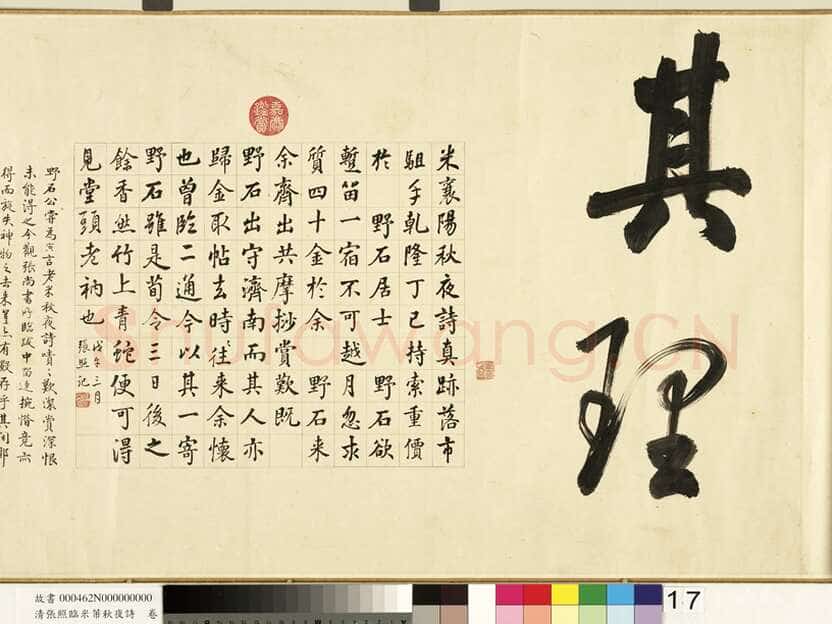 其理
米襄陽秋夜詩真跡落市
駔手乾隆丁巳持索重價
於 野石居士 野石欲
蹔留一宿不可越月忽求
質四十金於余 野石来
余齊出共摩挱賞歎既
野石出守濟南而其人亦
歸金取帖去時往来余懷
也曾臨二通今以其一寄
野石雖是荀令三日後之
餘香然竹上青蛇便可得
見堂頭老衲也
戊午三月
張照記
野石公嘗為言老米秋夜詩歎賞深恨
未能得之今觀張尚書所臨跋中留連惋惜竟亦
得而旋失神物之去来有數存乎其間耶
嘉慶鑑賞
Shufawang.CN
故書 000462N000000000
清張照臨米芾秋夜詩 卷
17